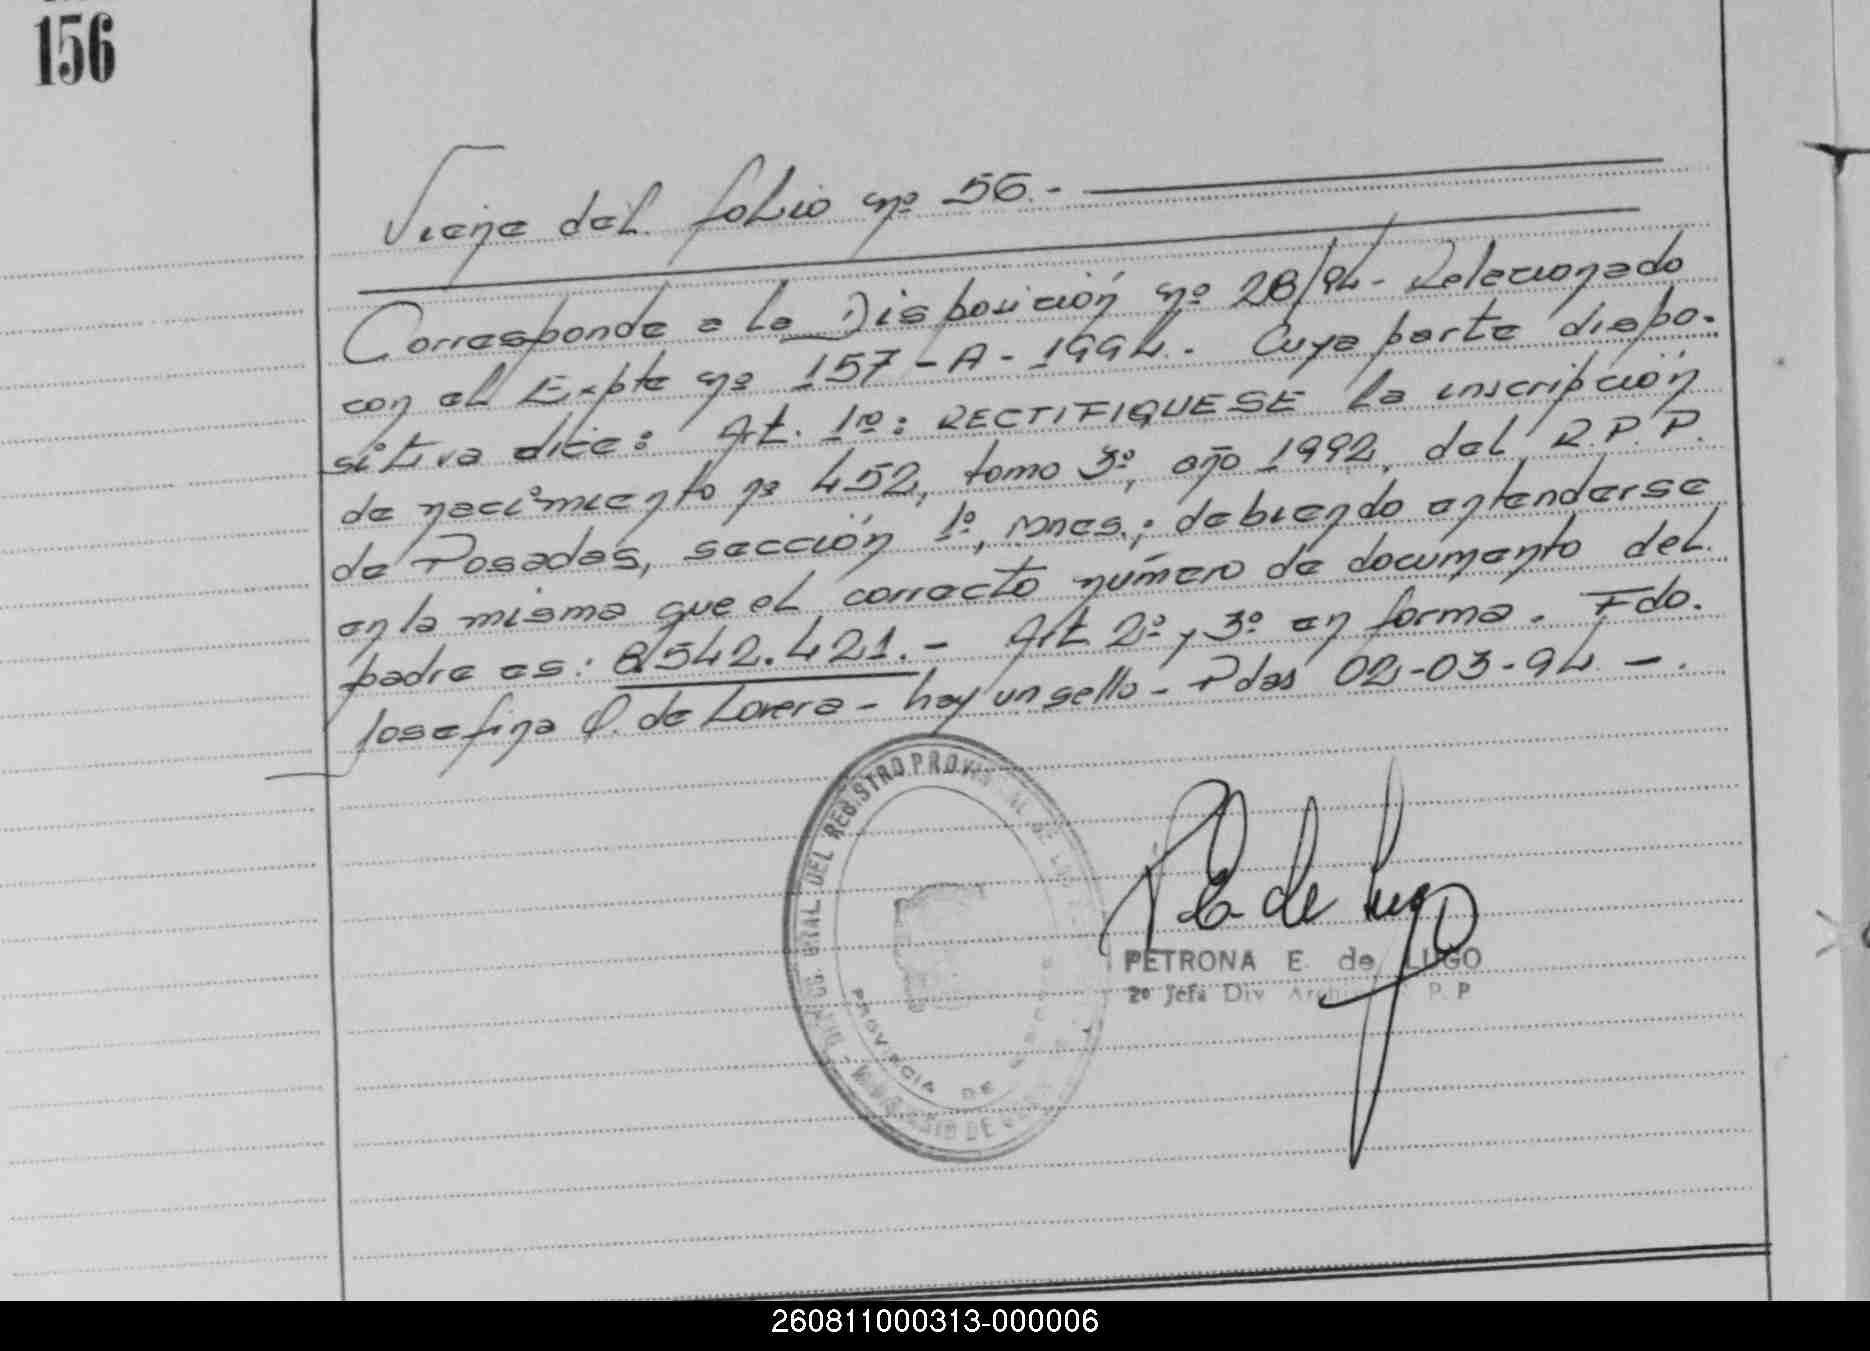 156
Viene del folio nº 56.-
Corresponde a la Disposición nº 28/94- Relacionado
con el Expte nº 157-A-1994.- Cuya parte dispo-
sitiva dice: Art. 1º: RECTIFIQUESE la inscripción
de nacimiento nº 452, tomo 3º, año 1992, del R.P.P.
de Posadas, sección 1º, Mnes.; debiendo entenderse
en la misma que el correcto número de documento del
padre es: 8.542.421.- Art 2º y 3º en forma. Fdo.
Josefina Q. de Lovera - hay un sello - Pdas 02-03-94 -.
DEL REGISTRO PROVINCIAL DE
PROVINCIA DE
P E de Lugo
PETRONA E. de LUGO
2º Jefa Div. P.P
260811000313-000006